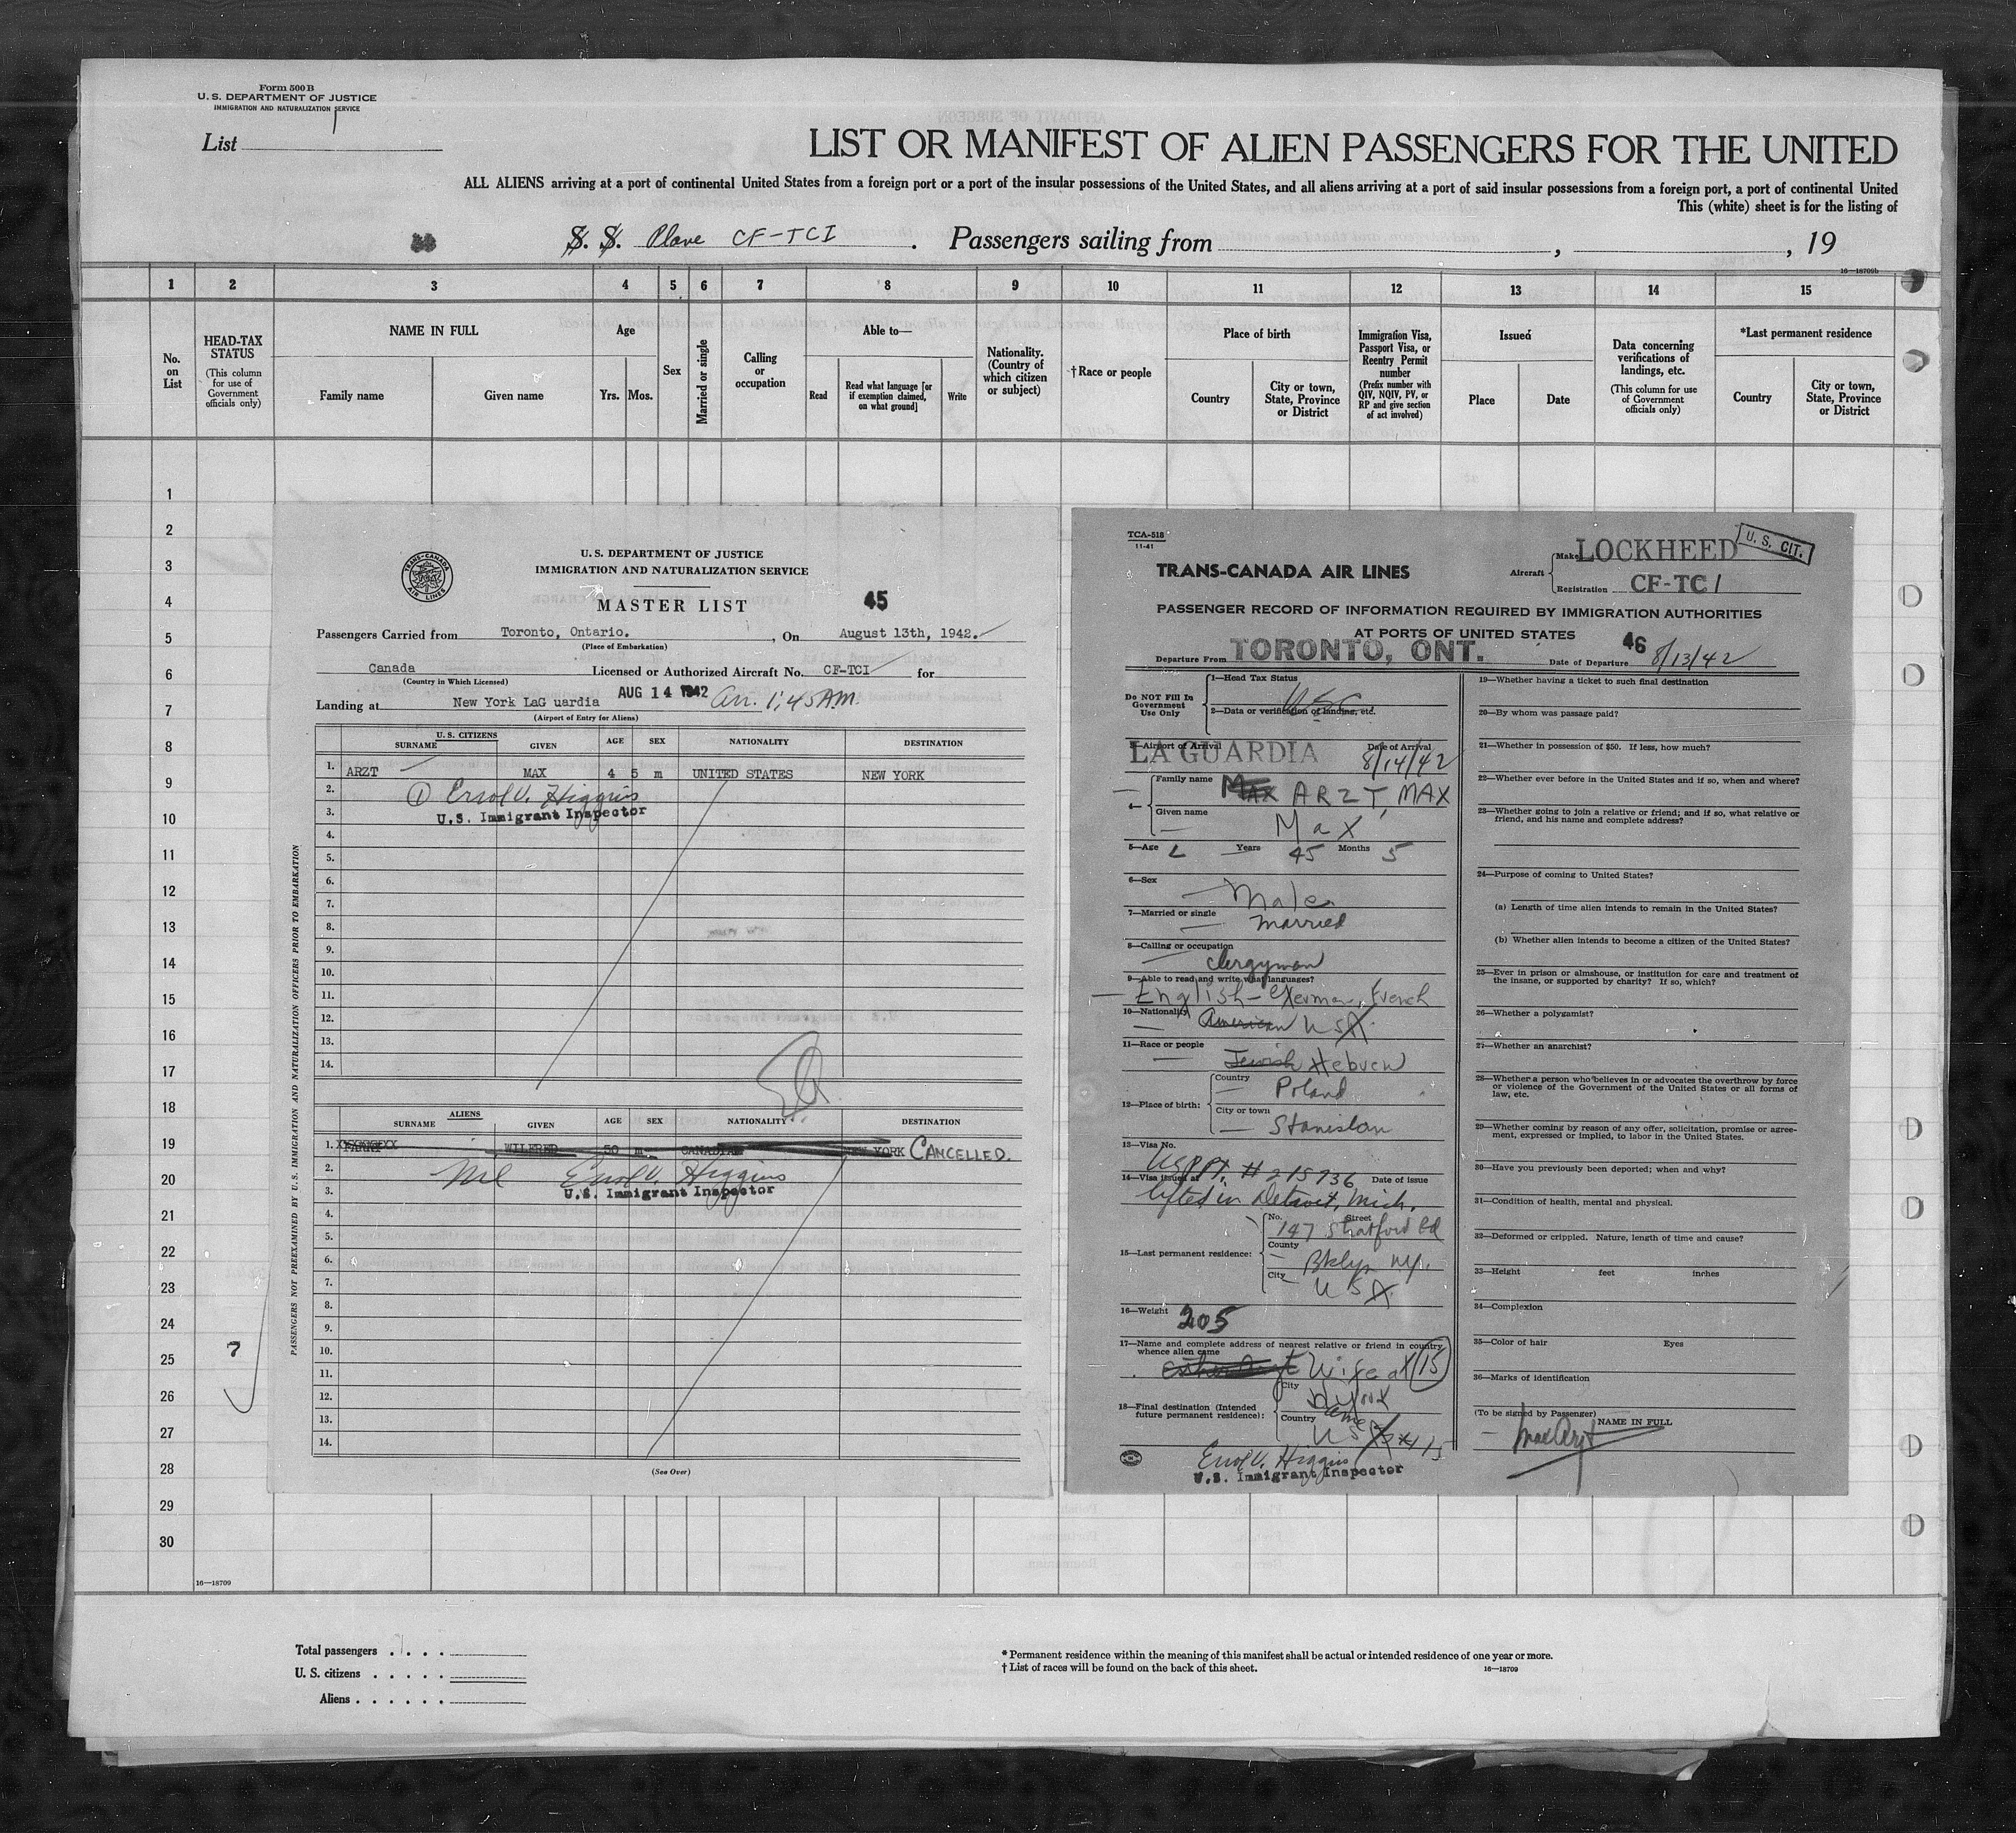 Form 500 B
U. S. DEPARTMENT OF JUSTICE
IMMIGRATION AND NATURALIZATION SERVICE
List
LIST OR MANIFEST OF ALIEN PASSENGERS FOR THE UNITED
ALL ALIENS arriving at a port of continental United States from a foreign port or a port of the insular possessions of the United States, and all aliens arriving at a port of said insular possessions from a foreign port, a port of continental United
This (white) sheet is for the listing of
S. S. Plane CF-TCI . Passengers sailing from , , 19
16—18709b
1 2 3 4 5 6 7 8 9 10 11 12 13 14 15
No. on List
HEAD-TAX STATUS
(This column for use of Government officials only)
NAME IN FULL
Family name
Given name
Age
Yrs. Mos.
Sex
Married or single
Calling or occupation
Able to—
Read
Read what language [or if exemption claimed, on what ground]
Write
Nationality. (Country of which citizen or subject)
†Race or people
Place of birth
Country
City or town, State, Province or District
Immigration Visa, Passport Visa, or Reentry Permit number
(Prefix number with QIV, NQIV, PV, or RP and give section of act involved)
Issued
Place
Date
Data concerning verifications of landings, etc.
(This column for use of Government officials only)
*Last permanent residence
Country
City or town, State, Province or District
1
2
3
4
5
6
7
8
9
10
11
12
13
14
15
16
17
18
19
20
21
22
23
24
25
26
27
28
29
30
16—18709
TRANS-CANADA AIR LINES
U. S. DEPARTMENT OF JUSTICE
IMMIGRATION AND NATURALIZATION SERVICE
MASTER LIST
45
Passengers Carried from Toronto, Ontario. , On August 13th, 1942.
(Place of Embarkation)
Canada Licensed or Authorized Aircraft No. CF-TCI for
(Country in Which Licensed)
Landing at New York LaG uardia AUG 14 1942 Arr. 1:45 A.M.
(Airport of Entry for Aliens)
U. S. CITIZENS
SURNAME GIVEN AGE SEX NATIONALITY DESTINATION
1. ARZT MAX 4 5 m UNITED STATES NEW YORK
2. ① Errol V. Higgins
3. U.S. Immigrant Inspector
4.
5.
6.
7.
8.
9.
10.
11.
12.
13.
14.
ALIENS
SURNAME GIVEN AGE SEX NATIONALITY DESTINATION
1. WILFRED 50 m CANADIAN NEW YORK CANCELLED.
2. Nil Errol V. Higgins
3. U.S. Immigrant Inspector
4.
5.
6.
7.
8.
9.
10.
11.
12.
13.
14.
(See Over)
PASSENGERS NOT PREEXAMINED BY U.S. IMMIGRATION AND NATURALIZATION OFFICERS PRIOR TO EMBARKATION
TCA-518
11-41
TRANS-CANADA AIR LINES
Aircraft
Make LOCKHEED
U. S. CIT.
Registration CF-TCI
PASSENGER RECORD OF INFORMATION REQUIRED BY IMMIGRATION AUTHORITIES
AT PORTS OF UNITED STATES
46
Departure From TORONTO, ONT. Date of Departure 8/13/42
Do NOT Fill In Government Use Only
1—Head Tax Status
USC
2—Data or verification of landing, etc.
3—Airport of Arrival Date of Arrival
LA GUARDIA 8/14/42
4—
Family name Max ARZT, MAX
Given name Max
5—Age Years 45 Months 5
6—Sex Male
7—Married or single Married
8—Calling or occupation
Clergyman
9—Able to read and write what languages?
English - German, French
10—Nationality American USA
11—Race or people
Jewish Hebrew
12—Place of birth:
Country
Poland
City or town
Stanislau
13—Visa No.
US PPt. # 215736
14—Visa issued at Date of issue
lifted in Detroit, Mich.
15—Last permanent residence:
No. Street
147 Stratford Rd
County
Bklyn NY.
City
USA
16—Weight 205
17—Name and complete address of nearest relative or friend in country whence alien came
Esther Arzt Wife at (15)
18—Final destination (Intended future permanent residence):
City
Same
Country
USA 15
Errol V. Higgins
U.S. Immigrant Inspector
19—Whether having a ticket to such final destination
20—By whom was passage paid?
21—Whether in possession of $50. If less, how much?
22—Whether ever before in the United States and if so, when and where?
23—Whether going to join a relative or friend; and if so, what relative or friend, and his name and complete address?
24—Purpose of coming to United States?
(a) Length of time alien intends to remain in the United States?
(b) Whether alien intends to become a citizen of the United States?
25—Ever in prison or almshouse, or institution for care and treatment of the insane, or supported by charity? If so, which?
26—Whether a polygamist?
27—Whether an anarchist?
28—Whether a person who believes in or advocates the overthrow by force or violence of the Government of the United States or all forms of law, etc.
29—Whether coming by reason of any offer, solicitation, promise or agreement, expressed or implied, to labor in the United States.
30—Have you previously been deported; when and why?
31—Condition of health, mental and physical.
32—Deformed or crippled. Nature, length of time and cause?
33—Height feet inches
34—Complexion
35—Color of hair Eyes
36—Marks of identification
(To be signed by Passenger) NAME IN FULL
Max Arzt
Total passengers
U. S. citizens
Aliens
* Permanent residence within the meaning of this manifest shall be actual or intended residence of one year or more.
† List of races will be found on the back of this sheet.
16—18709